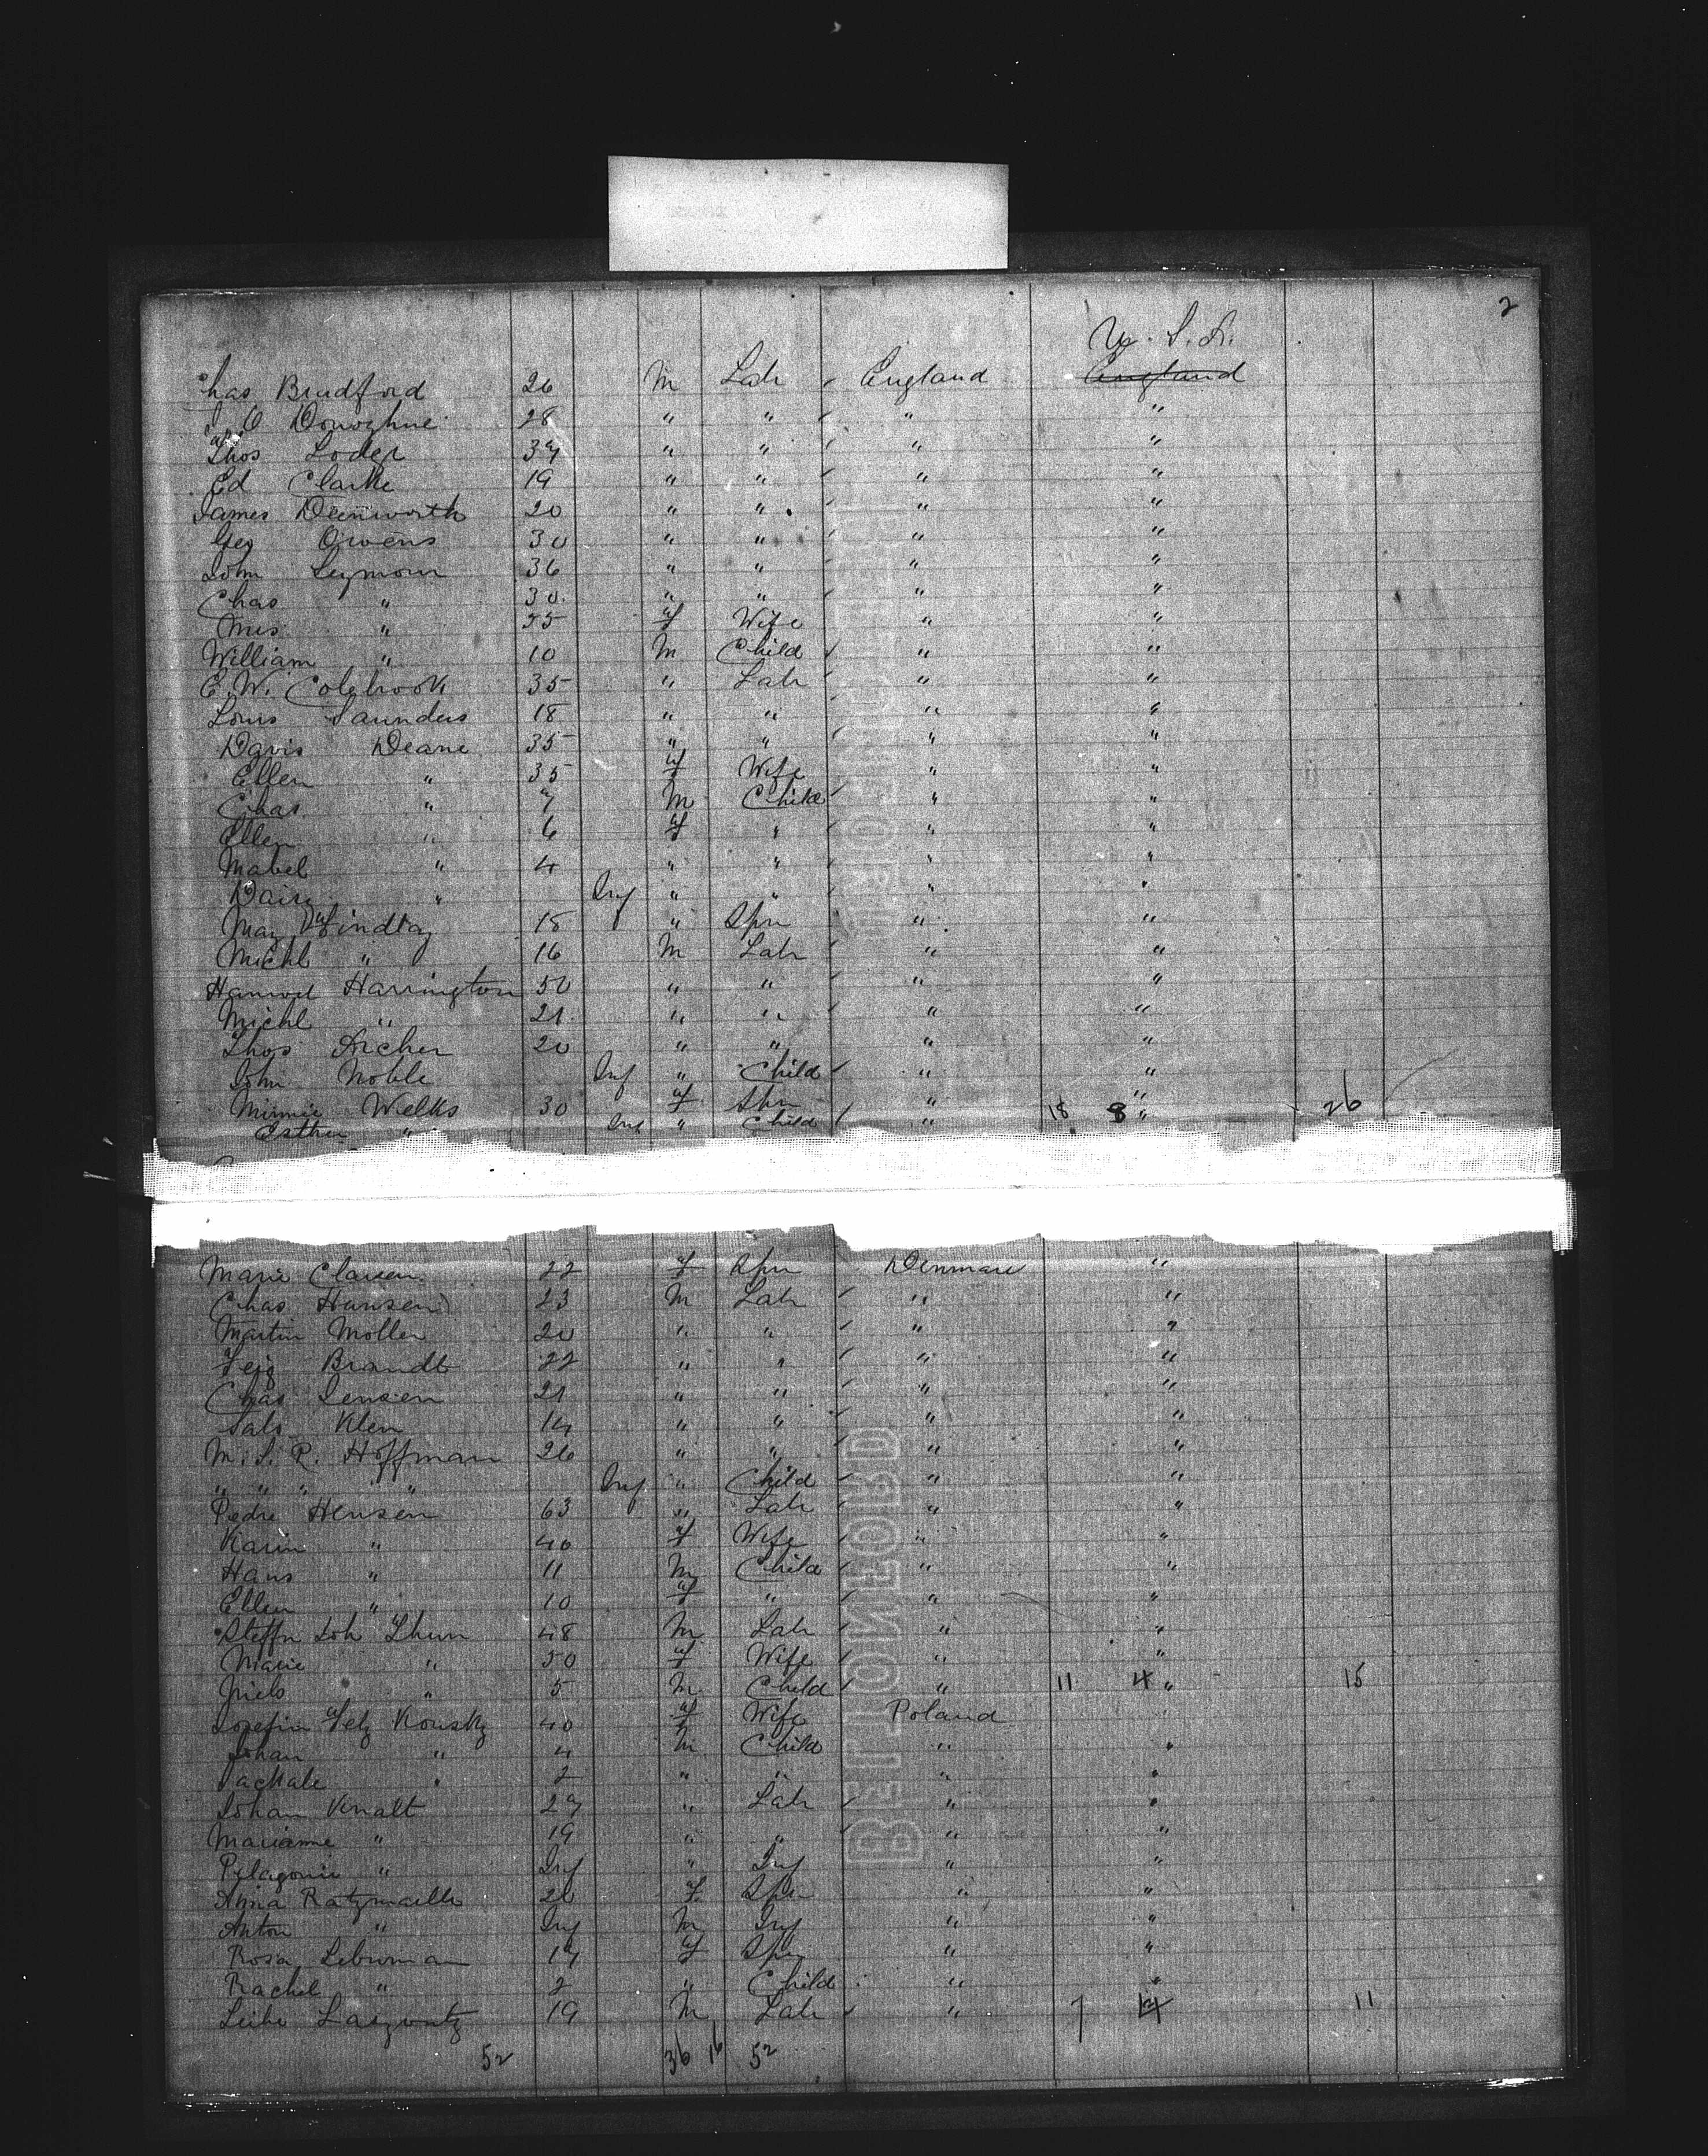 2
U. S. A.
Chas Bradford 26 M Lab England England
O Donoghue 28 " " " "
Thos Lodge 37 " " " "
Ed Clarke 19 " " " "
James Deenworth 20 " " " "
Geo Owens 30 " " " "
John Seymour 36 " " " "
Chas " 30 " " " "
Mrs " 35 f Wife " "
William " 10 M Child " "
E. W. Colebrook 35 " Lab " "
Louis Saunders 18 " " " "
Davis Deane 35 " " " "
Ellen " 35 f Wife " "
Chas " 7 M Child " "
Ellen " 6 f " " "
Mabel " 4 " " " "
Daisy " Inf " " " "
May 18 " Spn " "
Michl " 16 M Lab " "
Harrington 50 " " " "
Michl " 21 " " " "
Thos Archer 20 " " " "
John Noble Inf " Child " "
Minnie Welks 30 f Spn " "
Esther " Inf " Child " 18 8 " 26
Marie Clausen 22 f Spn Denmark "
Chas Hansen 23 M Lab " "
Martin Moller 20 " " " "
Brandt 22 " " " "
Chas Jensen 21 " " " "
Salo Klen 14 " " " "
M. S. R. Hoffman 26 " " " "
" " " " Inf " Child " "
Pedre Hensen 63 " Lab " "
Karin " 40 f Wife " "
Hans " 11 M Child " "
Ellen " 10 f " " "
Steffn Joh Thun 48 M Lab " "
Marie " 50 f Wife " "
Niels " 5 M Child " 11 4 " 15
Josefin Kousky 40 f Wife Poland "
Johan " 4 M Child " "
" 2 " " " "
Johan Knalt 27 " Lab " "
Marianne " 19 " " " "
Pelagonie " Inf " Inf " "
Anna Ratzmaelle 20 f Spn " "
Anton " Inf M Inf " "
Rosa Lebwman 17 f Spn " "
Rachel " 2 " Child " "
Leibe 19 M Lab " 7 4 11
52 36 16 52
BETTONFORD